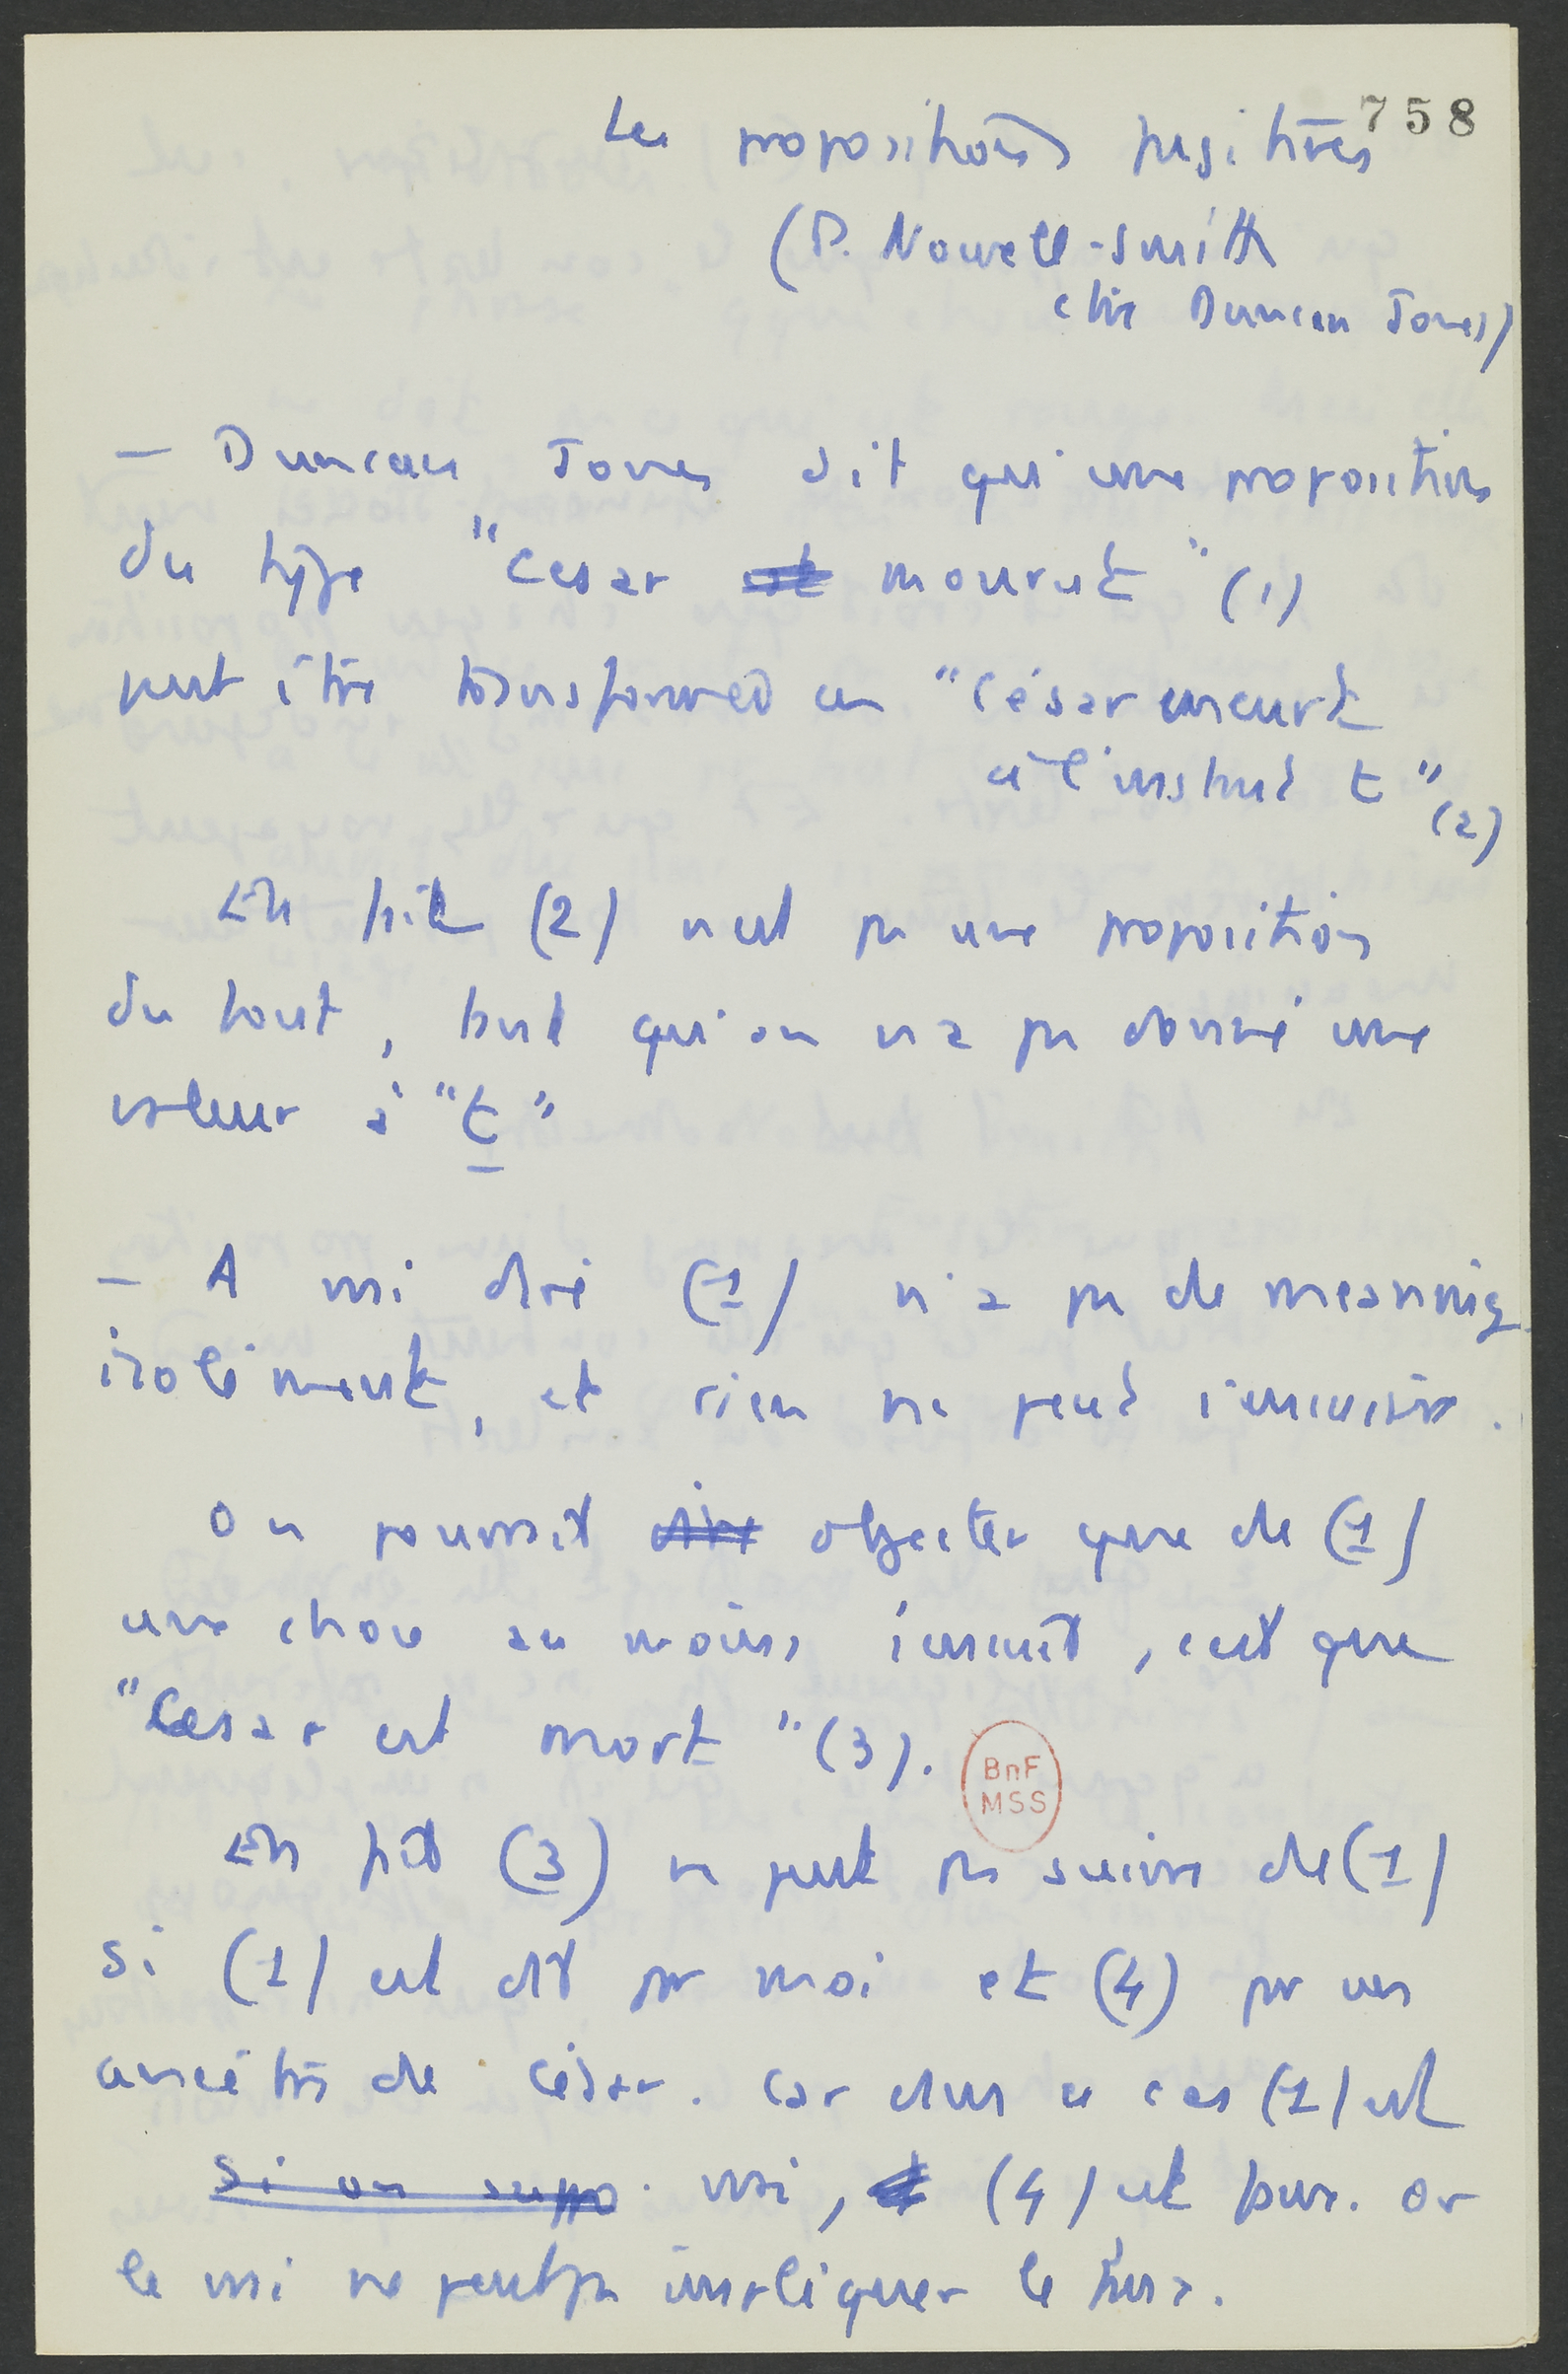 758
Les propositions fugitives
(P. Nowell-Smith
citée Duncan Jones)
— Duncan Jones dit qu'une proposition
du type "Cesar est mourut" (1)
peut être transformed en "César meurt
à l'instant t" (2)
En fait (2) n'est pas une proposition
du tout, tant qu'on n'a pas donné une
valeur à "t"
— A vrai dire (1) n'a pas de meaning
isolément, et rien ne peut s'ensuivre.
On pourrait dire objecter que de (1)
une chose au moins s'ensuit, c'est que
"Cesar est mort" (3).
BnF
MSS
En fait (3) ne peut pas suivre de (1)
si (1) est dit par moi et (4) par un
ancêtre de César. Car dans ce cas (1) est
si on suppo vrai, et (4) est faux. Or
le vrai ne peut pas impliquer le faux.